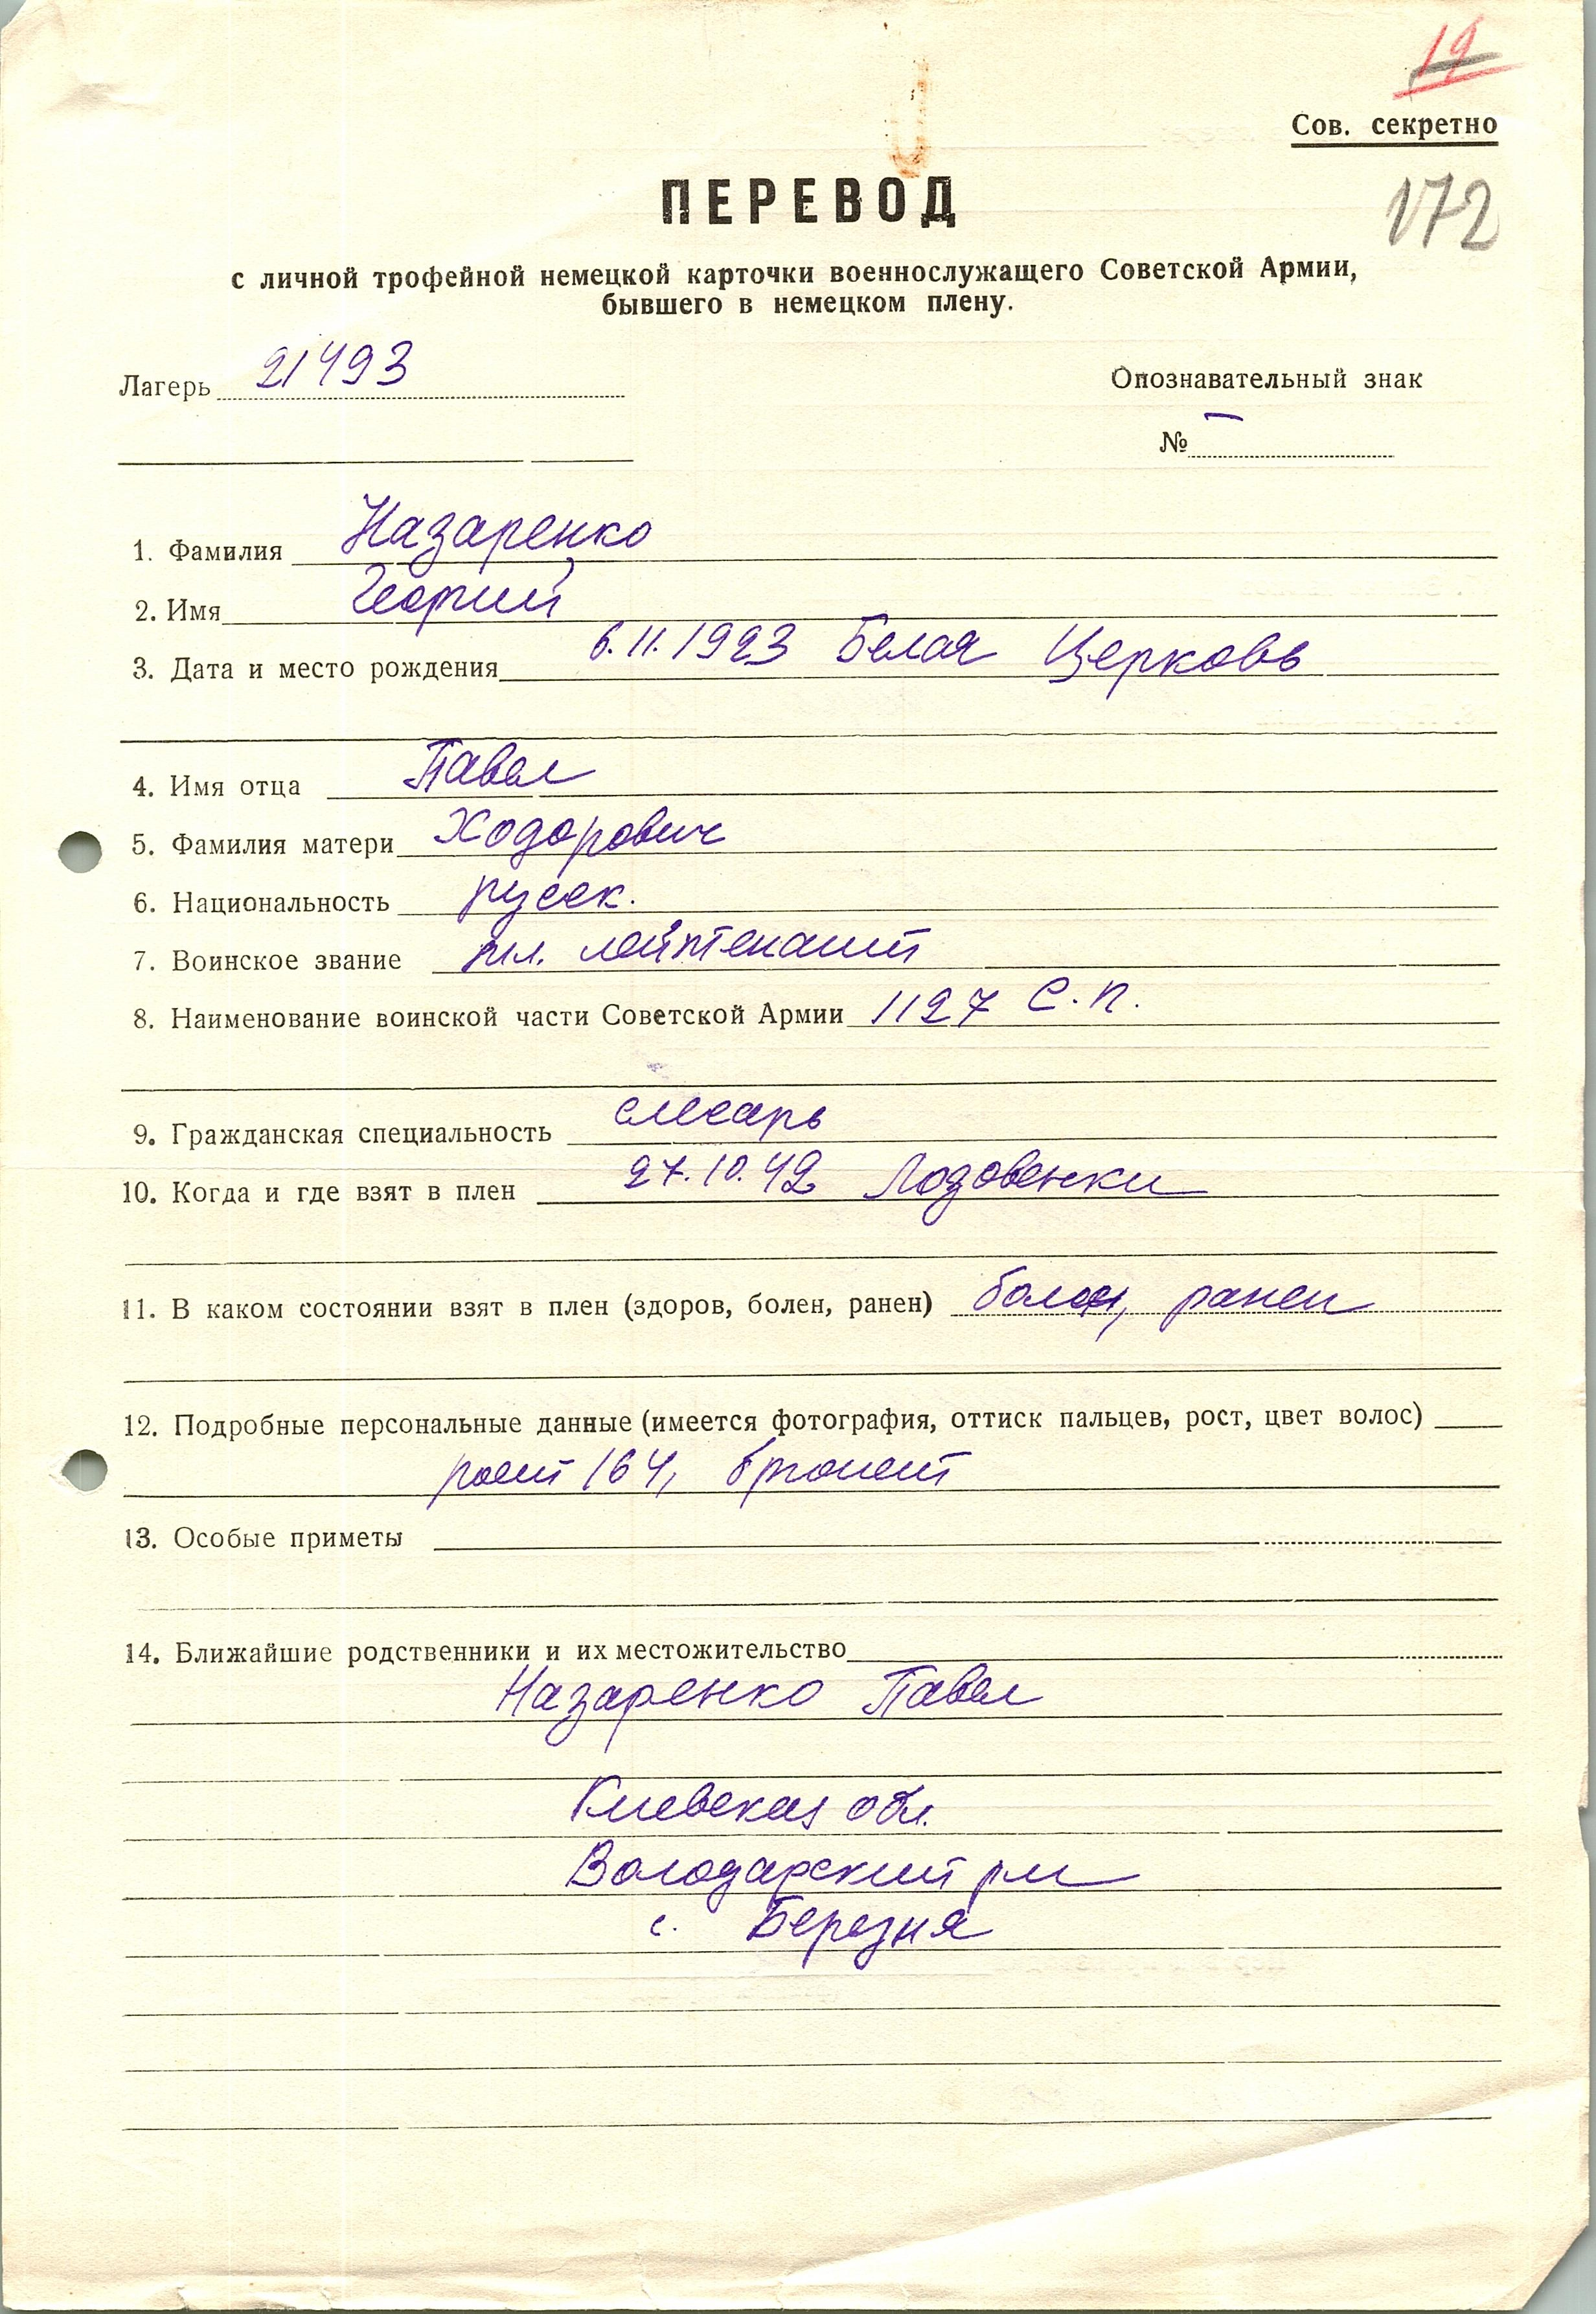 19
Сов. секретно
172
ПЕРЕВОД
с личной трофейной немецкой карточки военнослужащего Советской Армии,
бывшего в немецком плену.
Лагерь 21493
Опознавательный знак
№ —
1. Фамилия Назаренко
2. Имя Георгий
3. Дата и место рождения 6.11.1923 Белая Церковь
4. Имя отца Павел
5. Фамилия матери Ходорович
6. Национальность русск.
7. Воинское звание мл. лейтенант
8. Наименование воинской части Советской Армии 1127 с.п.
9. Гражданская специальность слесарь
10. Когда и где взят в плен 27.10.42 Лозовенки
11. В каком состоянии взят в плен (здоров, болен, ранен) болен, ранен
12. Подробные персональные данные (имеется фотография, оттиск пальцев, рост, цвет волос)
рост 164, брюнет
13. Особые приметы
14. Ближайшие родственники и их местожительство
Назаренко Павел
Киевская обл.
Володарский рн
с. Березня